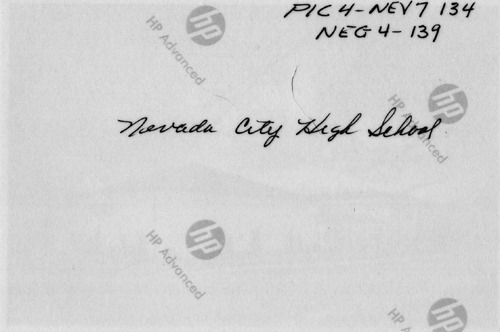 PIC 4-NEV7 134
NEG 4-139
hp
HP Advanced
hp
HP Advanced
Nevada City High School
hp
HP Advanced
hp
HP Advanced